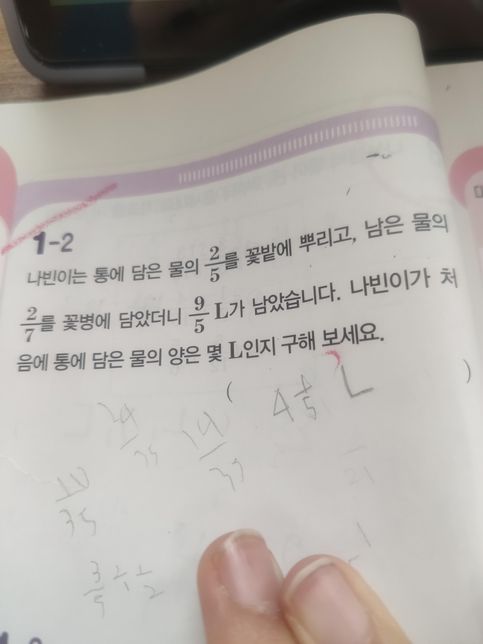 1-2
나빈이는 통에 담은 물의 2/5를 꽃밭에 뿌리고, 남은 물의
2/7를 꽃병에 담았더니 9/5 L가 남았습니다. 나빈이가 처
음에 통에 담은 물의 양은 몇 L인지 구해 보세요.
( 4 1/5 L )
10/35
3/5 ÷ 1/2